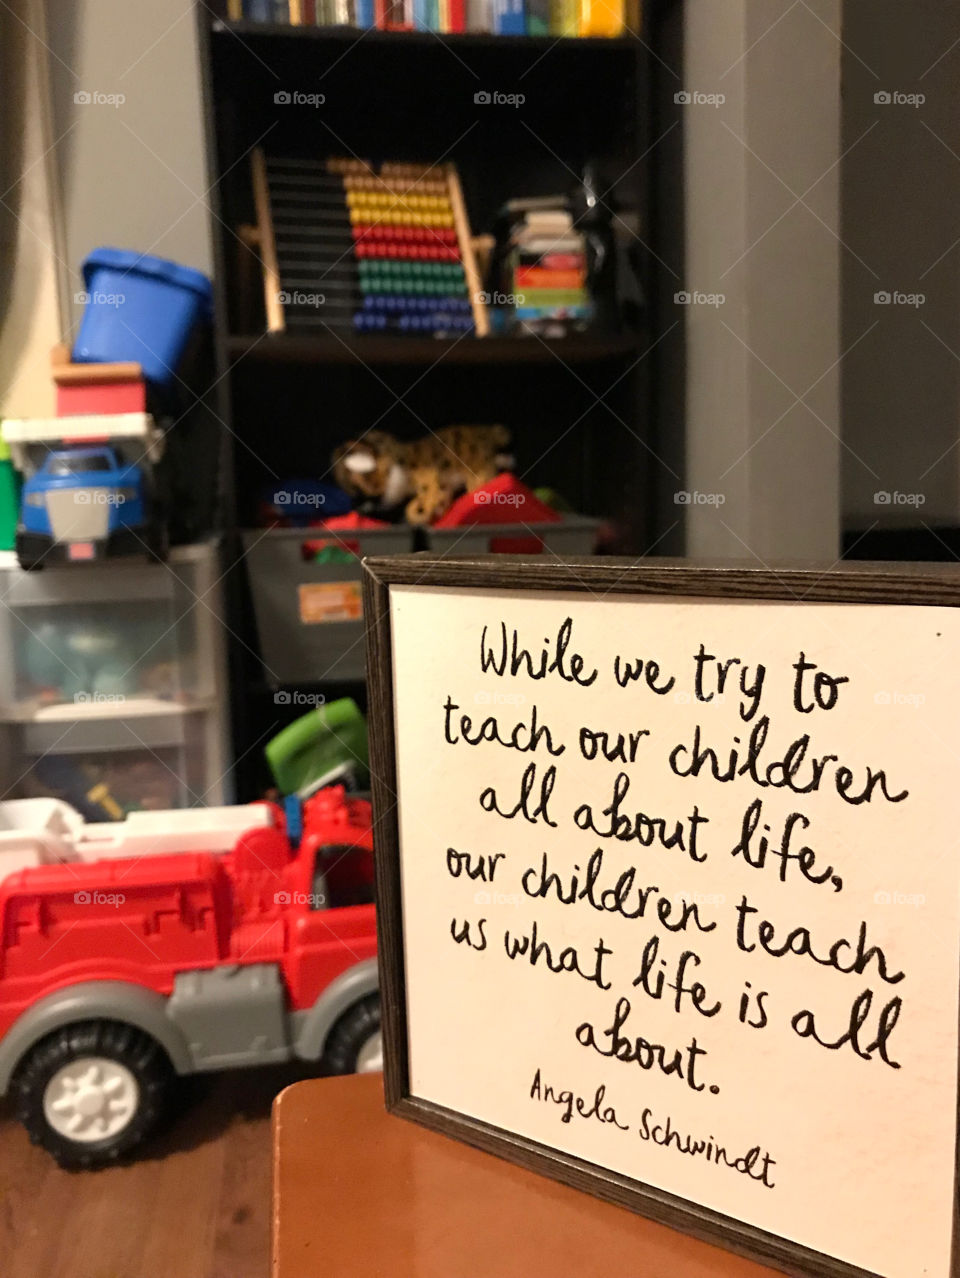 While we try to
teach our children
all about life,
our children teach
us what life is all
about.
Angela Schwindt
foap foap foap foap foap
foap foap foap foap foap
foap foap foap foap foap
foap foap foap foap foap
foap foap foap foap foap